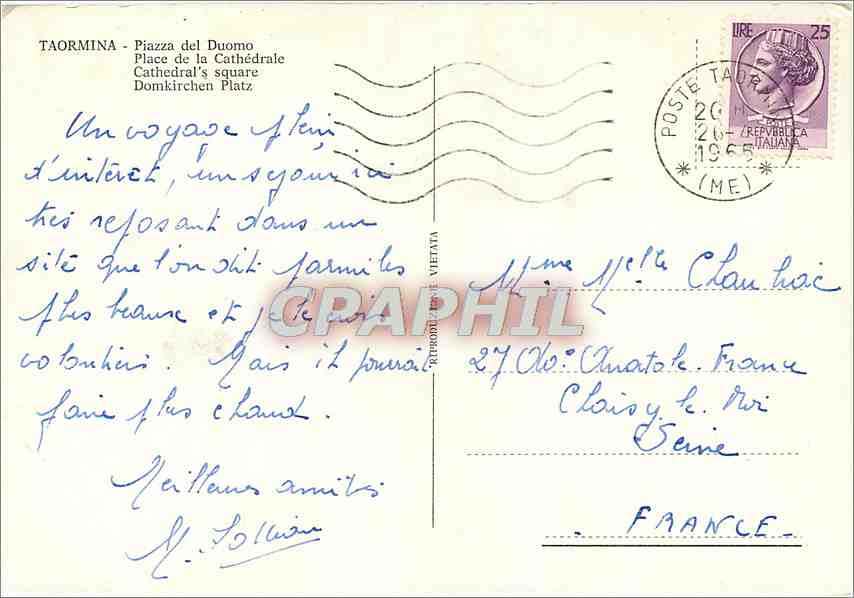 TAORMINA - Piazza del Duomo
Place de la Cathédrale
Cathedral's square
Domkirchen Platz
LIRE 25
POSTE
REPVBBLICA
ITALIANA
POSTE TAORMINA
20
26-
1965
* (ME) *
Un voyage plein
d'intérêt, un séjour ici
très reposant dans un
site que l'on dit parmi les
plus beaux et je le crois
volontiers. Mais il pourrait
faire plus chaud.
Meilleures amitiés
M.
RIPRODUZIONE VIETATA
CPAPHIL
Mme Melle Chauhac
27 Av. Anatole France
Choisy le Roi
Seine
FRANCE